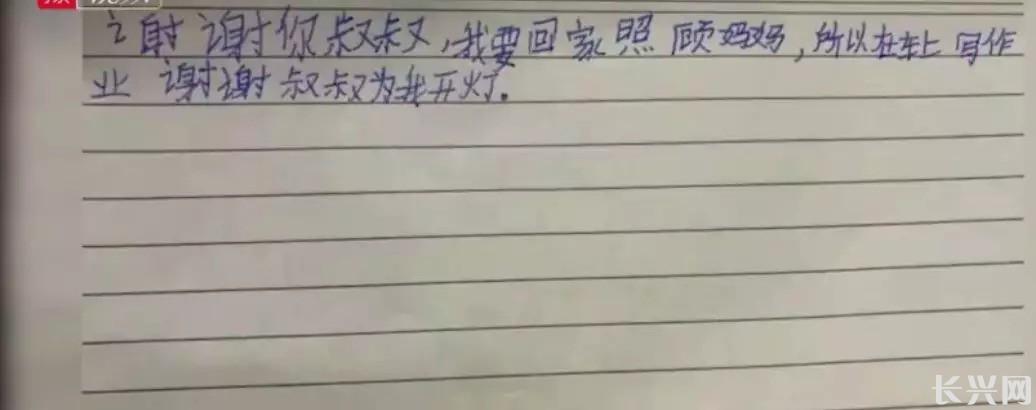 谢谢你叔叔,我要回家照顾妈妈,所以在车上写作
业 谢谢叔叔为我开灯。
长兴网